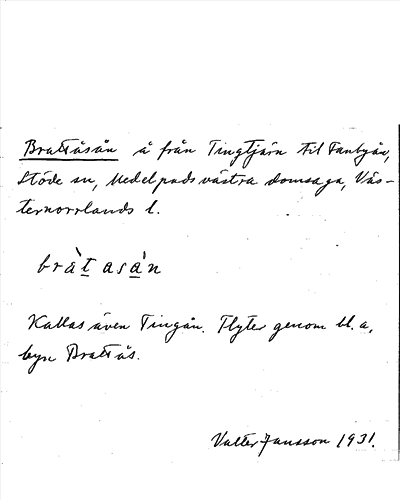 Brattåsån å från Tingtjärn till Fanbyån,
Stöde sn, Medelpads västra domsaga, Väs-
ternorrlands l.
bràt asàn
Kallas även Tingån. Flyter genom bl. a.
byn Brattås.
Valter Jansson 1931.